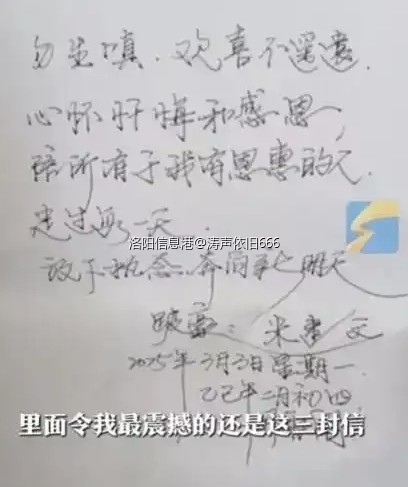 勿生嗔，欢喜不
心怀忏悔和感恩，
陪所有于我有恩惠的人
走过每一天
洛阳信息港@涛声依旧666
放下执念，奔向 明天
米 文
2025年3月3日星期一
乙巳年二月初四
里面令我最震撼的还是这三封信